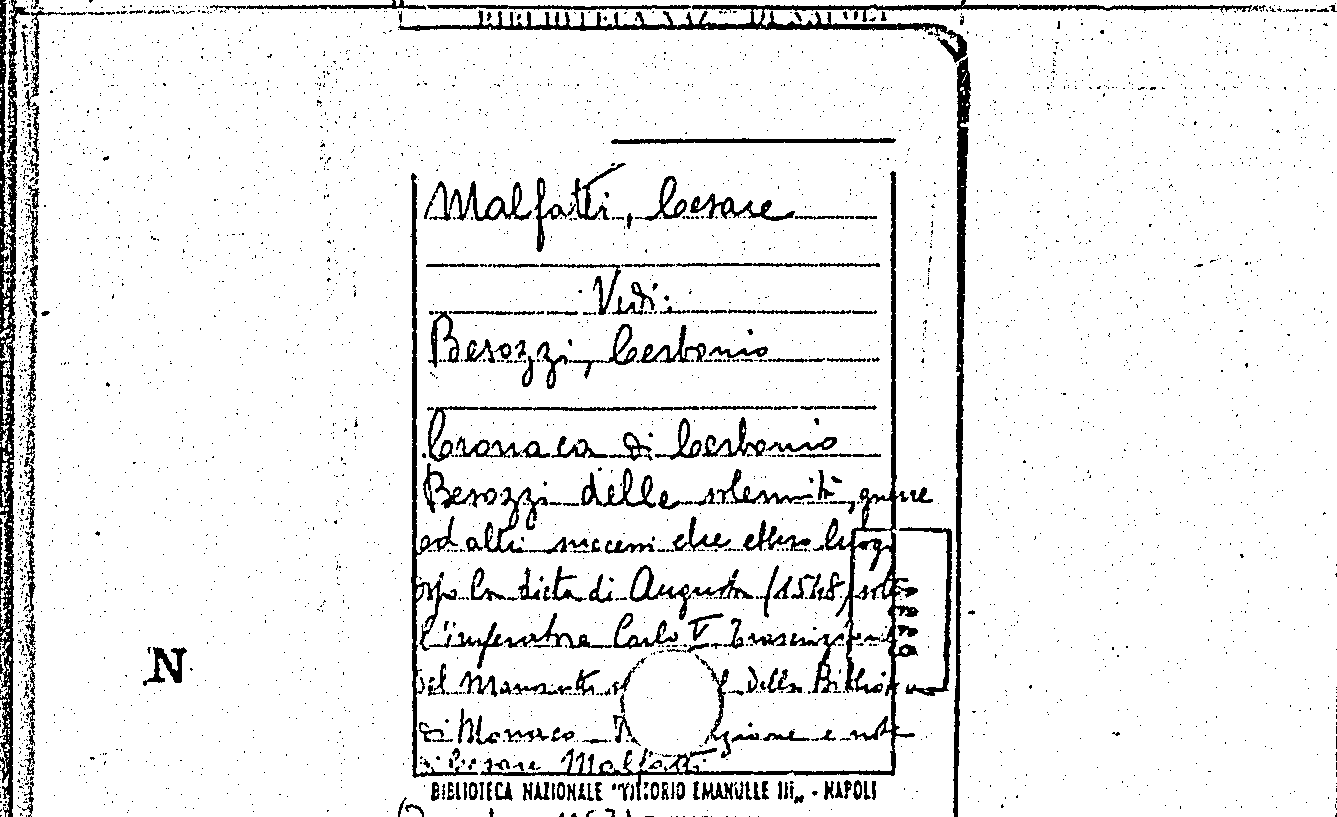 BIBLIOTECA NAZ. DI NAPOLI
Malfatti, Cesare
Vedi:
Besozzi, Cerbonio
Cronaca di Cerbonio
Besozzi delle solennità, guerre
ed altri successi che ebbero luogo
dopo la dieta di Augusta (1548) sotto
l'imperatore Carlo V. Trascrizione
del Manoscritto della Biblioteca
di Monaco e note
di Cesare Malfatti
N
BIBLIOTECA NAZIONALE "VITTORIO EMANUELE III" - NAPOLI